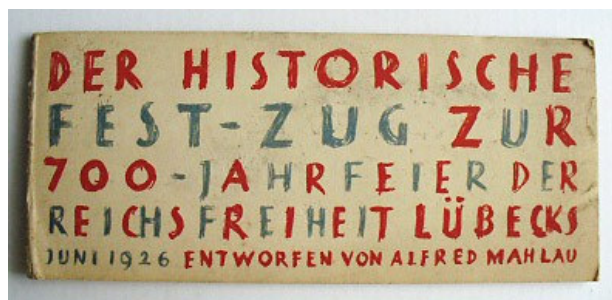 DER HISTORISCHE
FEST-ZUG ZUR
700-JAHRFEIER DER
REICHSFREIHEIT LÜBECKS
JUNI 1926 ENTWORFEN VON ALFRED MAHLAU